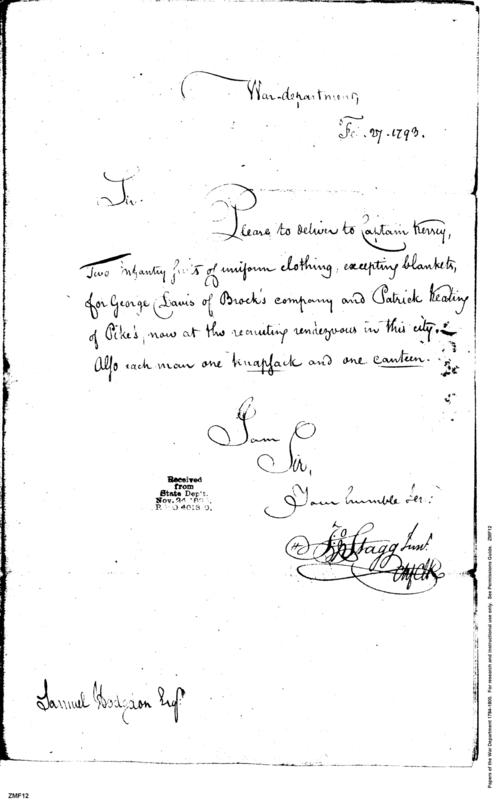 War-department,
Feb. 27. 1793.
Sir.
Please to deliver to Captain Kersey,
Two Infantry suits of uniform clothing, excepting blankets,
for George Davis of Brock's company and Patrick Keating
of Pike's, now at the recruiting rendezvous in this city.
Also each man one knapsack and one canteen.
I am
Sir,
Your humble Ser.
Jno Stagg Junr.
Chf Clk
Received
from
State Dep't.
Nov. 24
Samuel Hodgdon Esqr.
ZMF12
Papers of the War Department 1784-1800. For research and instructional use only. See Permissions Guide. ZMF12